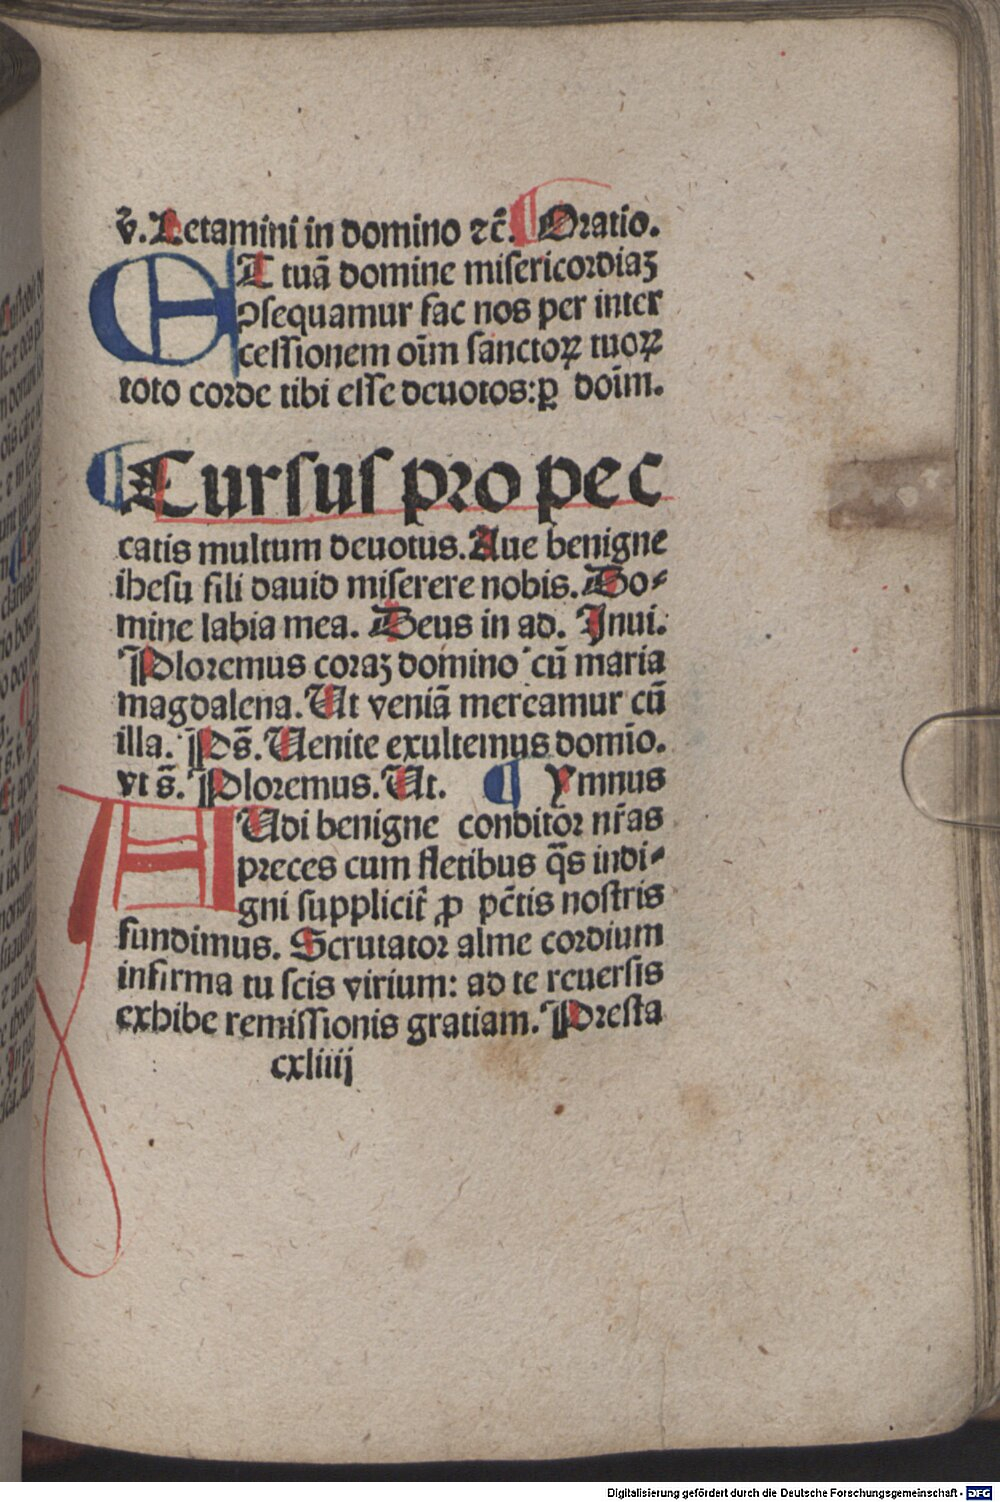 v̄. Letamini in domino ⁊c̄. Oratio.
ET tuā domine misericordiaꝫ
ꝯsequamur fac nos per inter
cessionem oīm sanctoꝝ tuoꝝ
toto corde tibi esse deuotos: ꝑ doīm.
Cursus pro pec
catis multum deuotus. Aue benigne
ihesu fili dauid miserere nobis. Do⸗
mine labia mea. Deus in ad. Inui.
Ploremus coraꝫ domino cū maria
magdalena. Ut veniā mereamur cū
illa. Ps̄. Uenite exultemus domīo.
vt s̄. Ploremus. Ut. ¶ Ymnus
AUdi benigne conditor nr̄as
preces cum fletibus q̄s indi⸗
gni supplicit̄ ꝓ pc̄tis nostris
fundimus. Scrutator alme cordium
infirma tu scis virium: ad te reuersis
exhibe remissionis gratiam. Presta
cxliiij
Digitalisierung gefördert durch die Deutsche Forschungsgemeinschaft - DFG